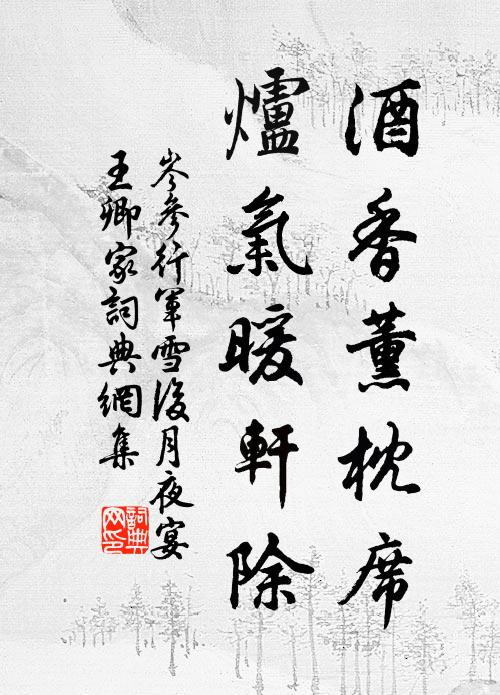 酒香薰枕席
爐氣暖軒除
岑參行軍雪後月夜宴
王卿家詞典網集
詞典
网印